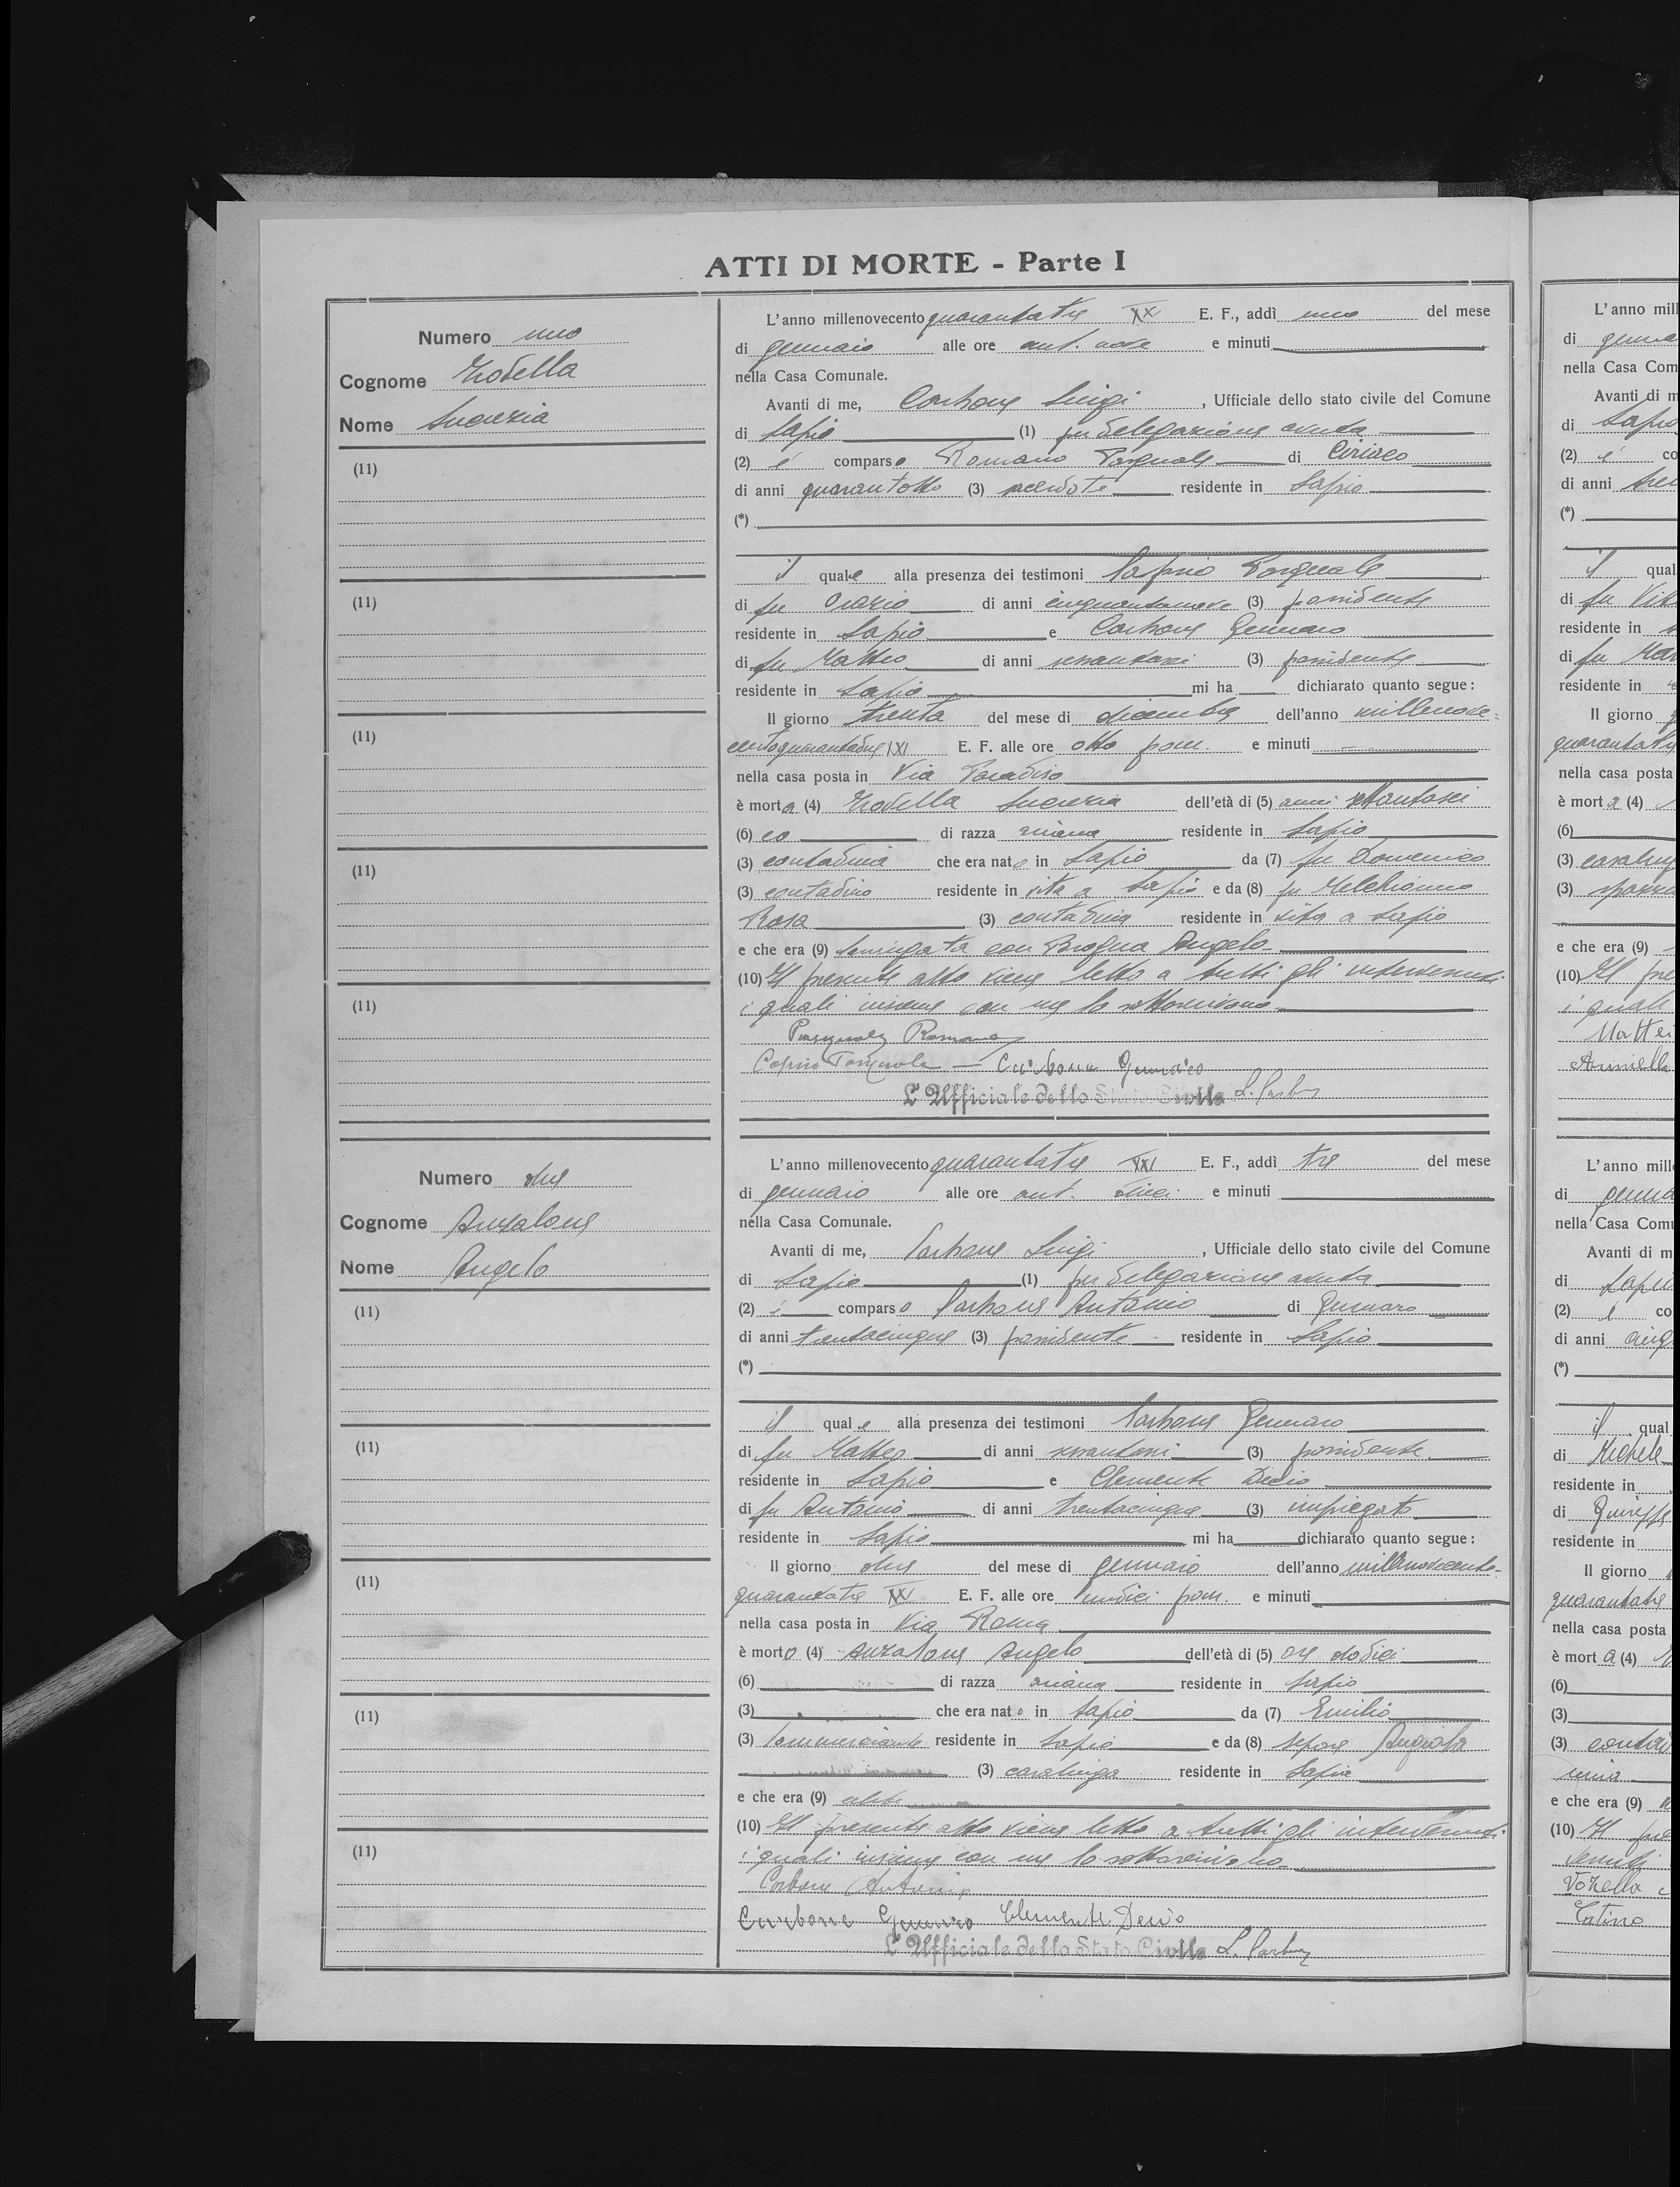 ATTI DI MORTE - Parte I
Numero uno
Cognome
Nome Lucrezia
(11)
(11)
(11)
(11)
(11)
L'anno millenovecento quarantatre XX E. F., addì uno del mese
di gennaio alle ore ant. nove e minuti
nella Casa Comunale.
Avanti di me, Carbone Luigi, Ufficiale dello stato civile del Comune
di Lapio (1) per delegazione avuta
(2) è comparso Romano Pasquale di Ciriaco
di anni quarantotto (3) sacerdote residente in Lapio
(*)
il quale alla presenza dei testimoni Pasquale
di fu Orazio di anni cinquantanove (3) possidente
residente in Lapio e Carbone Gennaro
di fu Matteo di anni (3) possidente
residente in Lapio mi ha dichiarato quanto segue:
Il giorno trenta del mese di dicembre dell'anno millenove=
centoquarantadue XXI E. F. alle ore otto pom. e minuti
nella casa posta in Via Paradiso
è morta (4) Lucrezia dell'età di (5) anni settantasei
(6) di razza ariana residente in Lapio
(3) contadina che era nata in Lapio da (7) fu Domenico
(3) contadino residente in vita a Lapio e da (8) fu Melchionno
Rosa (3) contadina residente in vita a Lapio
e che era (9) coniugata con Angelo
(10) Il presente atto viene letto a tutti gli intervenuti
i quali insieme con me lo sottoscrivono
Pasquale Romano
Pasquale - Carbone Gennaro
L'Ufficiale dello Stato Civile L. Carbone
Numero due
Cognome Anzalone
Nome Angelo
(11)
(11)
(11)
(11)
(11)
L'anno millenovecento quarantatre XXI E. F., addì tre del mese
di gennaio alle ore ant. dieci e minuti
nella Casa Comunale.
Avanti di me, Carbone Luigi, Ufficiale dello stato civile del Comune
di Lapio (1) per delegazione avuta
(2) è comparso Carbone Antonio di Gennaro
di anni trentacinque (3) possidente residente in Lapio
(*)
il quale alla presenza dei testimoni Carbone Gennaro
di fu Matteo di anni (3) possidente
residente in Lapio e Clemente Decio
di fu Antonio di anni trentacinque (3) impiegato
residente in Lapio mi ha dichiarato quanto segue:
Il giorno due del mese di gennaio dell'anno millenovecento-
quarantatre XXI E. F. alle ore undici pom. e minuti
nella casa posta in Via Roma
è morto (4) Anzalone Angelo dell'età di (5) ore dodici
(6) di razza ariana residente in Lapio
(3) che era nato in Lapio da (7) Emilio
(3) Commerciante residente in Lapio e da (8) Angiola
(3) casalinga residente in Lapio
e che era (9) celibe
(10) Il presente atto viene letto a tutti gli intervenuti
i quali insieme con me lo sottoscrivono
Carbone Antonio
Carbone Gennaro Clemente Decio
L'Ufficiale dello Stato Civile L. Carbone
L'anno mill
di genna
nella Casa Com
Avanti di m
di Lapio
(2) è co
di anni
(*)
il qual
di fu
residente in
di fu Mat
residente in
Il giorno
quarantatre
nella casa posta
è morta (4)
(6)
(3) casaling
(3)
e che era (9)
(10) Il pre
i quali
Matteo
L'anno mill
di genna
nella Casa Com
Avanti di m
di Lapio
(2) è co
di anni cinq
(*)
il qual
di Michele
residente in
di Giuseppe
residente in
Il giorno
quarantatre
nella casa posta
è morta (4)
(6)
(3)
(3) contad
e che era (9)
(10) Il pre
venuti